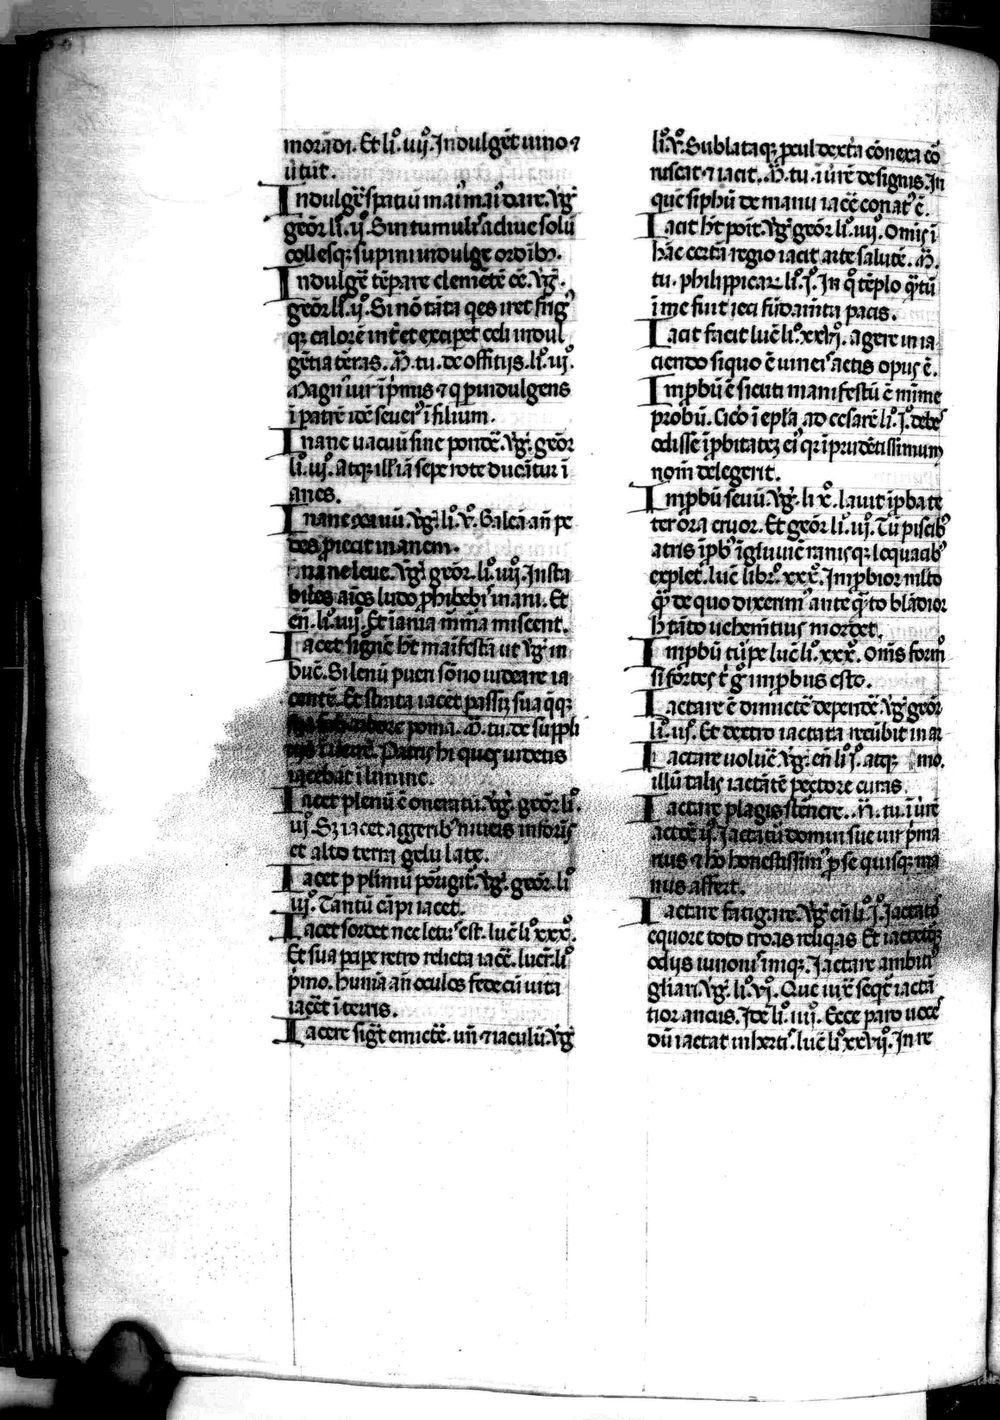 morādi. Et li.º iiij.º Indulgēt uino &
ūtūt.
Indulgēr spatiū mai' mai' dare. Vg̓
geōr. li.º ij.º Sin tumul' acliue solū
collesq; supini indulge ordib;.
Indulgēr tēpare clemētē ēē. Vg̓.
geōr. li.º ij.º Si nō tāta q̄es iret frig'
q; calorē int' et exciperet celi indul
gētia tēras. M̄. tu. de offitijs. li.º ij.º
Magn' uir ī p'mis & q̄ p̄indulgens
ī patrē idē seuer' ī filium.
Inane uacuū sine pondē. Vg̓. geōr
li.º iij.º atq; illi ā sepe rote ducūtur ī
anes.
Inane uū. Vg̓. li.º v.º Galeā añ pe
des p̄iecit inanem.
Inane leue. Vg̓. geōr. li.º iiij.º Insta
biles aīos ludo p̄hibebi' inani. Et
eñ. li.º iiij.º Et īania m̄ma miscent.
Iacet sign̄ē hēt māifestā ut Vg̓ in
buc̄. Silenū pueri sōno uidere ia
centē. Et strata iacēt passī; sua q̄q;
poma. M̄. tu. de suppli
Patris hi quos uidetis
iacebāt ī limine.
Iacet plenū ē oneratū. Vg̓. geōr. li.º
iij.º Sz iacet aggerib' niueis inform̄s
et alto terra gelu late.
Iacet p plimū porrigit̄. Vg̓. geōr. li.º
iij.º Tantū cāpi iacet.
Iacet sordet nec letu' est. lucr̄. li.º xxx.º
Et sua pape retro relicta iacē. lucr̄. li.º
p̄mo. humā añ oculos fede cū uita
iacēt ī terris.
Iacere sig̓t emictē. uñ & iaculū. Vg̓
li.º v.º Sublataq; p̄cul dextā cōnexa cō
ruscat & iacit. M̄. tu. ī ūrē de signis. In
quē siphū de manu iacē conat' ē.
Iacit hēt poit. Vg̓. geōr. li.º iiij.º Omis ī
hāc certā regio iacit arte salutē. M̄.
tu. philippicar. li.º j.º In q̄ tēplo q̄tū
ī me fuit ieci fūdam̄ta pacis.
Iacit facit lucr̄. li.º xxvj.º agere in ia
ciendo siquo ē uinci' actis opus ē.
Improbū ē sicuti manifestū ē mīme
probū. Cicō ī epl̄a ad cesarē li.º j.º debe'
edisse ī p̄bitatez ei' qr ī prudētissimum
nom̄ delegerit.
Improbū seuū. Vg̓. li.º x.º lauit īp̄ba te
ter ōra cruor. Et geōr. li.º iij.º Tū piscib'
atris īp̄b' īgluuiē ranisq; loquacib'
explet. lucr̄. libr.º xxx.º Improbior mlto
q̄ de quo dixerim' ante q̄to blādior
h' tāto uehem̄tius mordet.
Improbū turpe lucr̄. li.º xxx.º Omis form̄
si fortes t' ḡ improbus esto.
Iactare ē dimictē depēdē. Vg̓. geōr
li.º ij.º Et dextro iactata recūbit in ar
Iactare uoluē. Vg̓. eñ. li.º j.º atq; mo.
illū talis iactātē pectore curas.
Iactare plagis stēnere. M̄. tu. ī ūrē
actōē ij.º Iactatū domui sue uir p̄ma
rius & ho honestissim' p̄ se quisq; ma
nus affert.
Iactare fatigare. Vg̓. eñ. li.º j.º Iactatos
equore toto troas reliq̄as. Et iactetq;
odijs iunonis iniq;. Iactare ambiti'
gliari. Vg̓. li.º vj.º Que iux̄ seq̄t' iactā
tior ancus. Idē li.º iij.º Ecce paro uoces
dū iactat inhertis. lucr̄. li.º xxvij.º In re